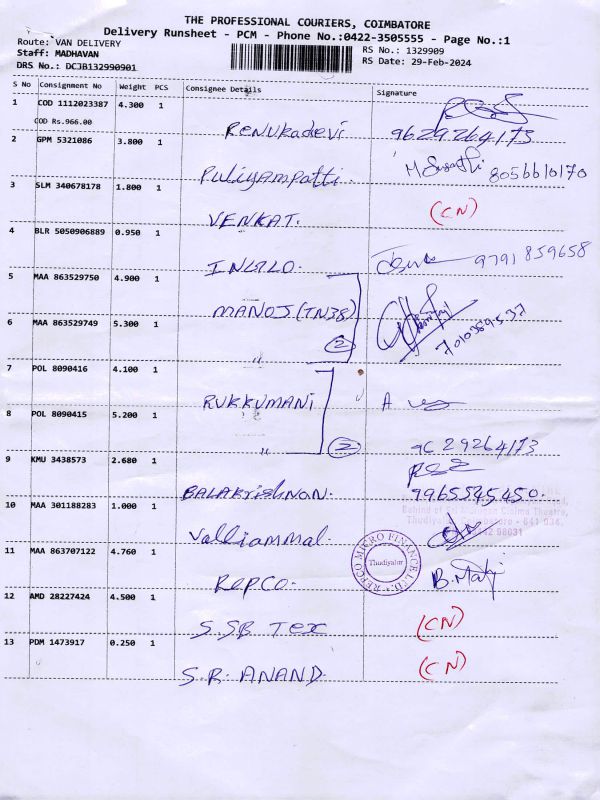 THE PROFESSIONAL COURIERS, COIMBATORE
Delivery Runsheet - PCM - Phone No.:0422-3505555 - Page No.:1
Route: VAN DELIVERY
RS No.: 1329909
Staff: MADHAVAN
RS Date: 29-Feb-2024
DRS No.: DCJB132990901
S No Consignment No Weight PCS Consignee Details Signature
1 COD 1112023387 4.300 1
COD Rs.966.00
Renukadevi 9629264173
2 GPM 5321086 3.800 1
Puliyampatti. 8056610170
3 SLM 340678178 1.800 1
VENKAT. (CN)
4 BLR 5050906889 0.950 1
9791859658
5 MAA 863529750 4.900 1
MANOJ (TN38)
6 MAA 863529749 5.300 1
" 2
7 POL 8090416 4.100 1
RUKKUMANI
8 POL 8090415 5.200 1
" 2 9629264173
9 KMU 3438573 2.680 1
BALAKrishNON. 9965595450.
10 MAA 301188283 1.000 1
Valliammal.
11 MAA 863707122 4.760 1
REPCO MICRO FINANCE LTD.
Thudiyalur
Repco.
12 AMD 28227424 4.500 1
S.SB Tex (CN)
13 PDM 1473917 0.250 1
S.R. ANAND. (CN)